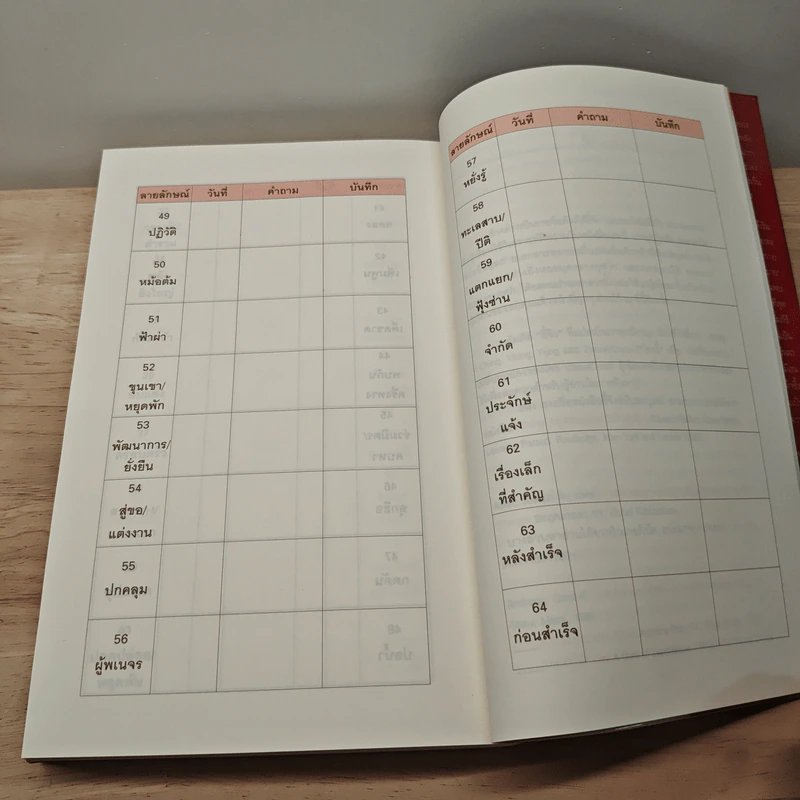 ลายลักษณ์ วันที่ คำถาม บันทึก
49
ปฏิวัติ
50
หม้อต้ม
51
ฟ้าผ่า
52
ขุนเขา/
หยุดพัก
53
พัฒนาการ/
ยั่งยืน
54
สู่ขอ/
แต่งงาน
55
ปกคลุม
56
ผู้พเนจร
ลายลักษณ์ วันที่ คำถาม บันทึก
57
หยั่งรู้
58
ทะเลสาบ/
ปีติ
59
แตกแยก/
ฟุ้งซ่าน
60
จำกัด
61
ประจักษ์
แจ้ง
62
เรื่องเล็ก
ที่สำคัญ
63
หลังสำเร็จ
64
ก่อนสำเร็จ